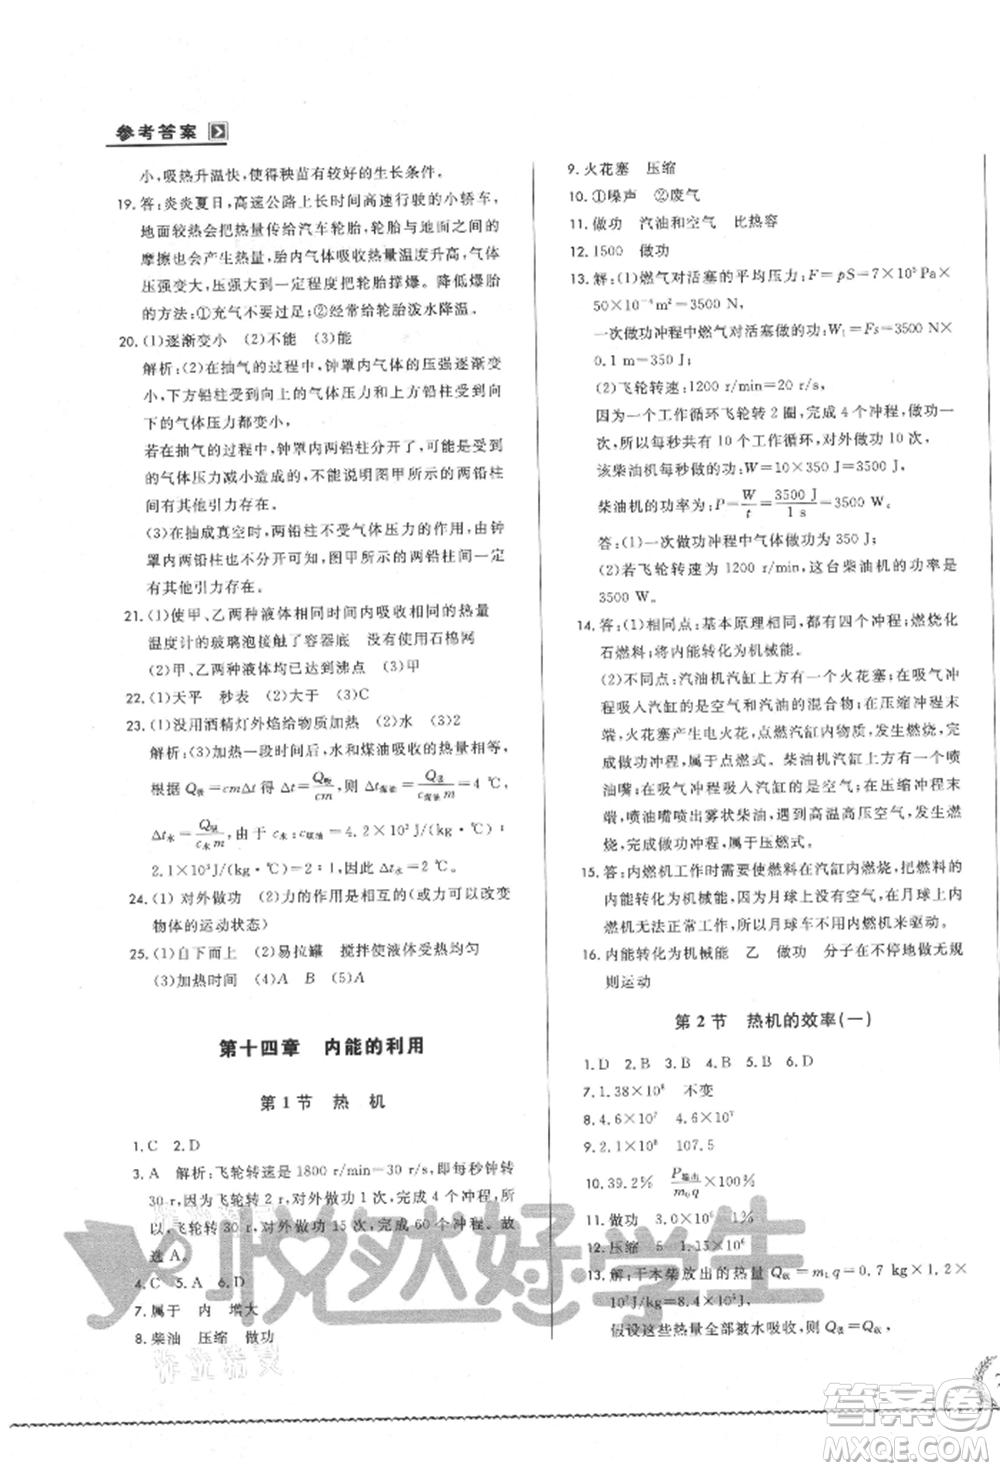 参考答案
小,吸热升温快,使得秧苗有较好的生长条件。
19. 答:炎炎夏日,高速公路上长时间高速行驶的小轿车,
地面较热会把热量传给汽车轮胎,轮胎与地面间的
摩擦也会产生热量,胎内气体吸收热量温度升高、气体
压强变大,压强大到一定程度将轮胎撑爆。防止爆胎
的方法:①充气不要过足;②经常给轮胎泼水降温。
20. (1)逐渐变小 (2)不能 (3)能
解析:(2)在抽气的过程中,钟罩内气体的压强逐渐变
小,下方铅柱受到向上的气体压力变小,上方铅柱受
的气体压力都变小。
若在抽气的过程中,钟罩内两铅柱分开了,可能是向上
的气体压力减小造成的,不能说明图甲所示的两铅柱
间没有其他引力存在。
(3)在抽成真空时,两铅柱不受气体压力的作用,在钟
罩内两铅柱也不分开可知,图甲所示的两铅柱间有
其他引力存在。
21. (1)使甲、乙两种液体相同时间内吸收相同的热量
温度计的玻璃泡接触了容器底 没有使用石棉网
(2)甲、乙两种液体均已达到沸点
22. (1)天平 秒表 (2)大于 (3)C
23. (1)没用酒精灯外焰给物质加热 (2)水 (3)2
解析:(3)加热一段时间后,水和煤油吸收的热量相等,
根据 Q吸=cmΔt 得 Δt=Q吸/cm,则 Δt煤油=Q吸/c煤油m=4 ℃,
Δt水=Q吸/c水m,由于 c水:c煤油=4.2×10³J/(kg·℃):
2.1×10³J/(kg·℃)=2:1,因此 Δt水=2 ℃。
24. (1) 对外做功 (2)力的作用是相互的(或力可以改变
物体的运动状态)
25. (1)自下而上 (2)易拉罐 搅拌使液体受热均匀
(3)加热时间 (4)A B (5)A
第十四章 内能的利用
第 1 节 热 机
1. C 2. D
3. A 解析:飞轮转速是 1800 r/min=30 r/s,即每秒钟转
30 r,因为飞轮转 2 r,对外做功 1 次,完成 4 个冲程,所
以,飞轮转 30 r,对外做功 15 次,完成 60 个冲程。故
选 A。
4. C 5. A 6. D
7. 属于 内 增大
8. 柴油 压缩 做功
9. 火花塞 压缩
10. ①噪声 ②废气
11. 做功 汽油和空气 比热容
12. 1500 做功
13. 解:(1)燃气对活塞的平均压力:F=pS=7×10⁵ Pa×
50×10⁻⁴ m²=3500 N,
一次做功冲程中燃气对活塞做的功:W₁=Fs=3500 N×
0.1 m=350 J;
(2)飞轮转速:1200 r/min=20 r/s,
因为一个工作循环飞轮转 2 圈,完成 4 个冲程,做功 1
次,所以每秒共有 10 个工作循环,对外做功 10 次,
该柴油机每秒做的功:W=10×350 J=3500 J,
柴油机的功率为:P=W/t=3500 J/1 s=3500 W。
答:(1)一次做功冲程中气体做功是 350 J;
(2)若飞轮转速为 1200 r/min,这台柴油机的功率是
3500 W。
14. 答:(1)相同点:基本原理相同,都有四个冲程;燃烧化
石燃料;将内能转化为机械能。
(2)不同点:汽油机汽缸上方有一个火花塞,在吸气冲
程吸入汽缸的是空气和汽油的混合物;在压缩冲程末
端,火花塞产生电火花,点燃汽缸内物质,发生燃烧,完
成做功冲程,属于点燃式。柴油机汽缸上方有一个喷
油嘴,在吸气冲程吸入汽缸的是空气;在压缩冲程末
端,喷油嘴喷出雾状柴油,遇到高温高压空气,发生燃
烧,完成做功冲程,属于压燃式。
15. 答:内燃机工作时需要燃料在汽缸内燃烧,把燃料的
内能转化为机械能,因为月球上没有空气,在月球上内
燃机无法正常工作,所以月球车不用内燃机来驱动。
16. 内能转化为机械能 乙 做功 分子在不停地做无规
则运动
第 2 节 热机的效率(一)
1. D 2. B 3. B 4. B 5. B 6. D
7. 1.38×10⁸ 不变
8. 4.6×10⁷ 4.6×10⁷
9. 2.1×10⁸ 107.5
10. 39.2% P输出/m₀q×100%
11. 做功 3.0×10⁷ 1%
12. 压缩 5 1.15×10⁷
13. 解:干木柴放出的热量 Q放=m₁q=0.7 kg×1.2×
10⁷J/kg=8.4×10⁶J,
假设这些热量全部被水吸收,则 Q吸=Q放,
悦然好学生
答案圈
MXQE.COM